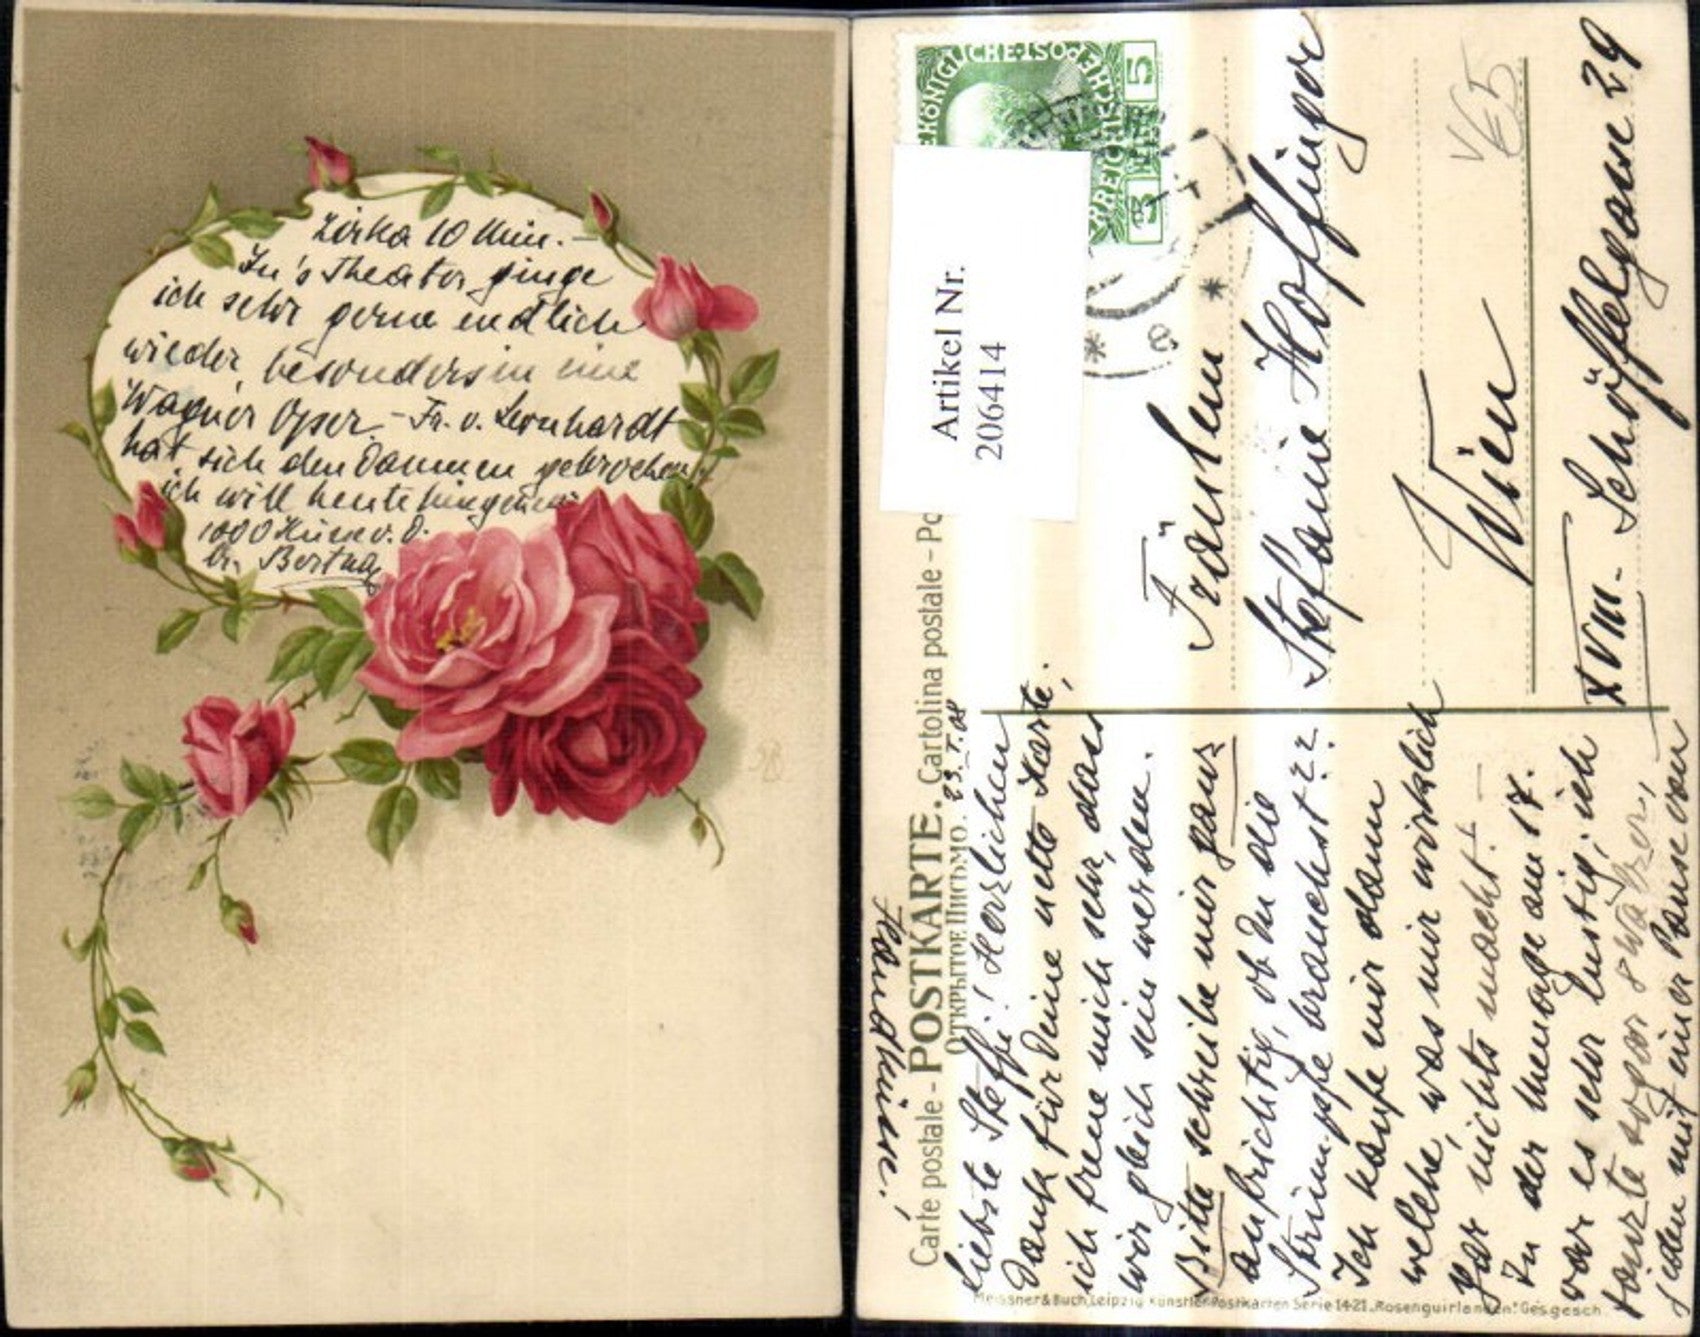 Zirka 10 Min. –
In's Theater ginge
ich sehr gerne endlich
wieder, besonders in eine
Wagner Oper. – Fr. v. Leonhardt
hat sich den Daumen gebrochen,
ich will heute hingehen
1000 Küsse v. D.
Artikel Nr.
206414
5
5
Carte postale - POSTKARTE. Cartolina postale - Po
Открытое Письмо.
23. I. 08
Handküsse!
Liebste Steffi! Herzlichen
Dank für Deine nette Karte,
ich freue mich sehr, dass
wir gleich sein werden.
Bitte schreibe mir ganz
aufrichtig, ob Du die
Strümpfe brauchst??
Ich kaufe mir dann
welche, was mir wirklich
gar nichts macht! –
In der menage am 17.
war es sehr lustig; ich
tanzte sogar 8 Walzer,
jeden mit einer Pause von
Fräulein
Stefanie Hoffinger
Wien
XVIII. Schöffelgasse 29
Meissner & Buch, Leipzig Künstler-Postkarten Serie 1421 „Rosenguirlanden" Ges. gesch.